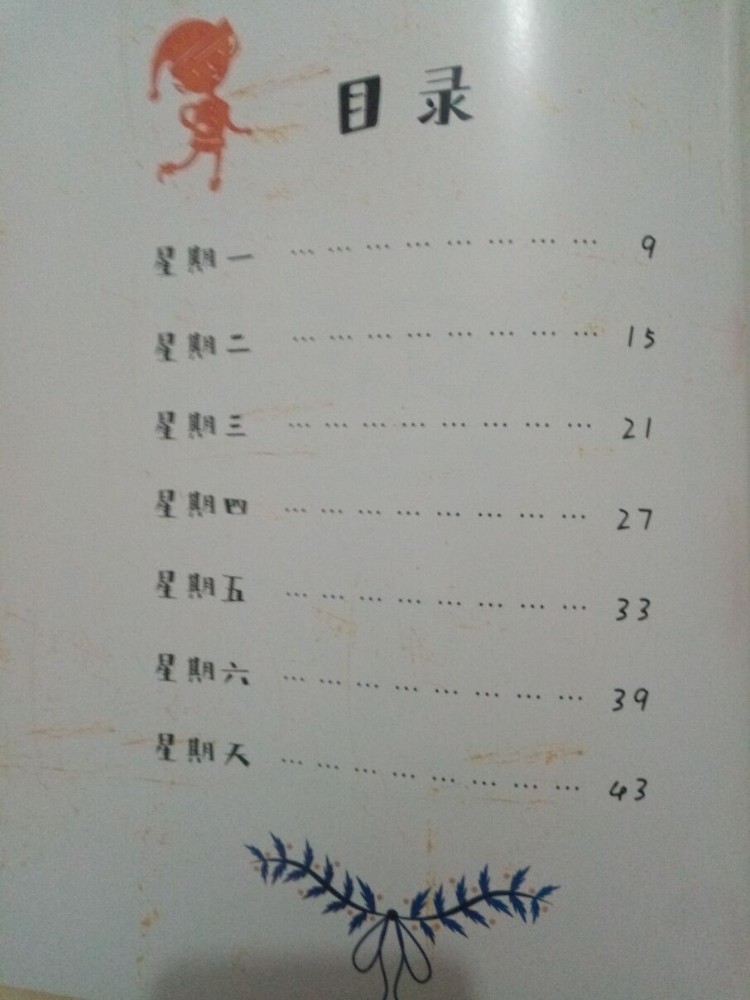 目录
星期一 … … … … … … … … 9
星期二 … … … … … … … … 15
星期三 … … … … … … … … 21
星期四 … … … … … … … … 27
星期五 … … … … … … … … 33
星期六 … … … … … … … … 39
星期天 … … … … … … … … 43